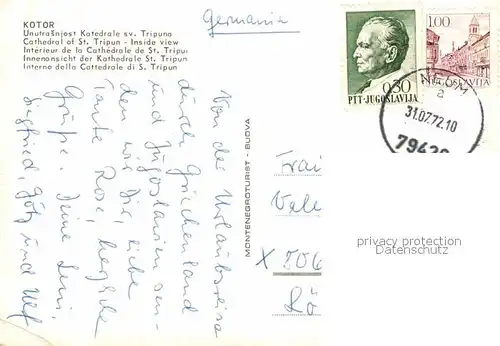 KOTOR
Unutrašnjost Katedrale sv. Tripuna
Cathedral of St. Tripun - Inside view
Intérieur de la Cathédrale de St. Tripun
Innenansicht der Kathedrale St. Tripun
Interno della Cattedrale di S. Tripun
Germania
Von der Urlaubsreise
durch Griechenland
und Jugoslawien sen-
den wir Dir, liebe
Tante Rose, herzliche
Grüße. Deine
Siegfried, Götz und Ulf
MONTENEGROTURIST - BUDVA
0,30
PTT-JUGOSLAVIJA
1.00
JUGOSLAVIJA
31.07.72.10
2
Vale
X 506
Rö
privacy protection
Datenschutz